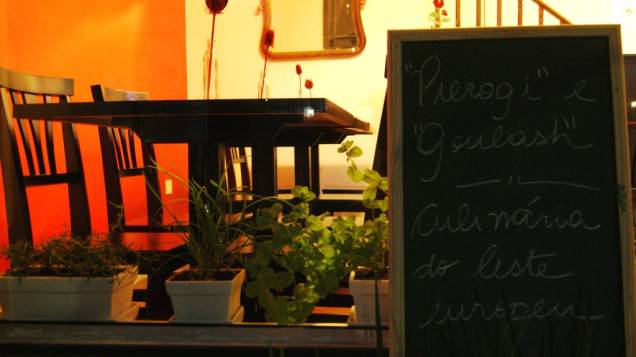 "Pierogi" e
"Goulash"
Culinária
do leste
europeu